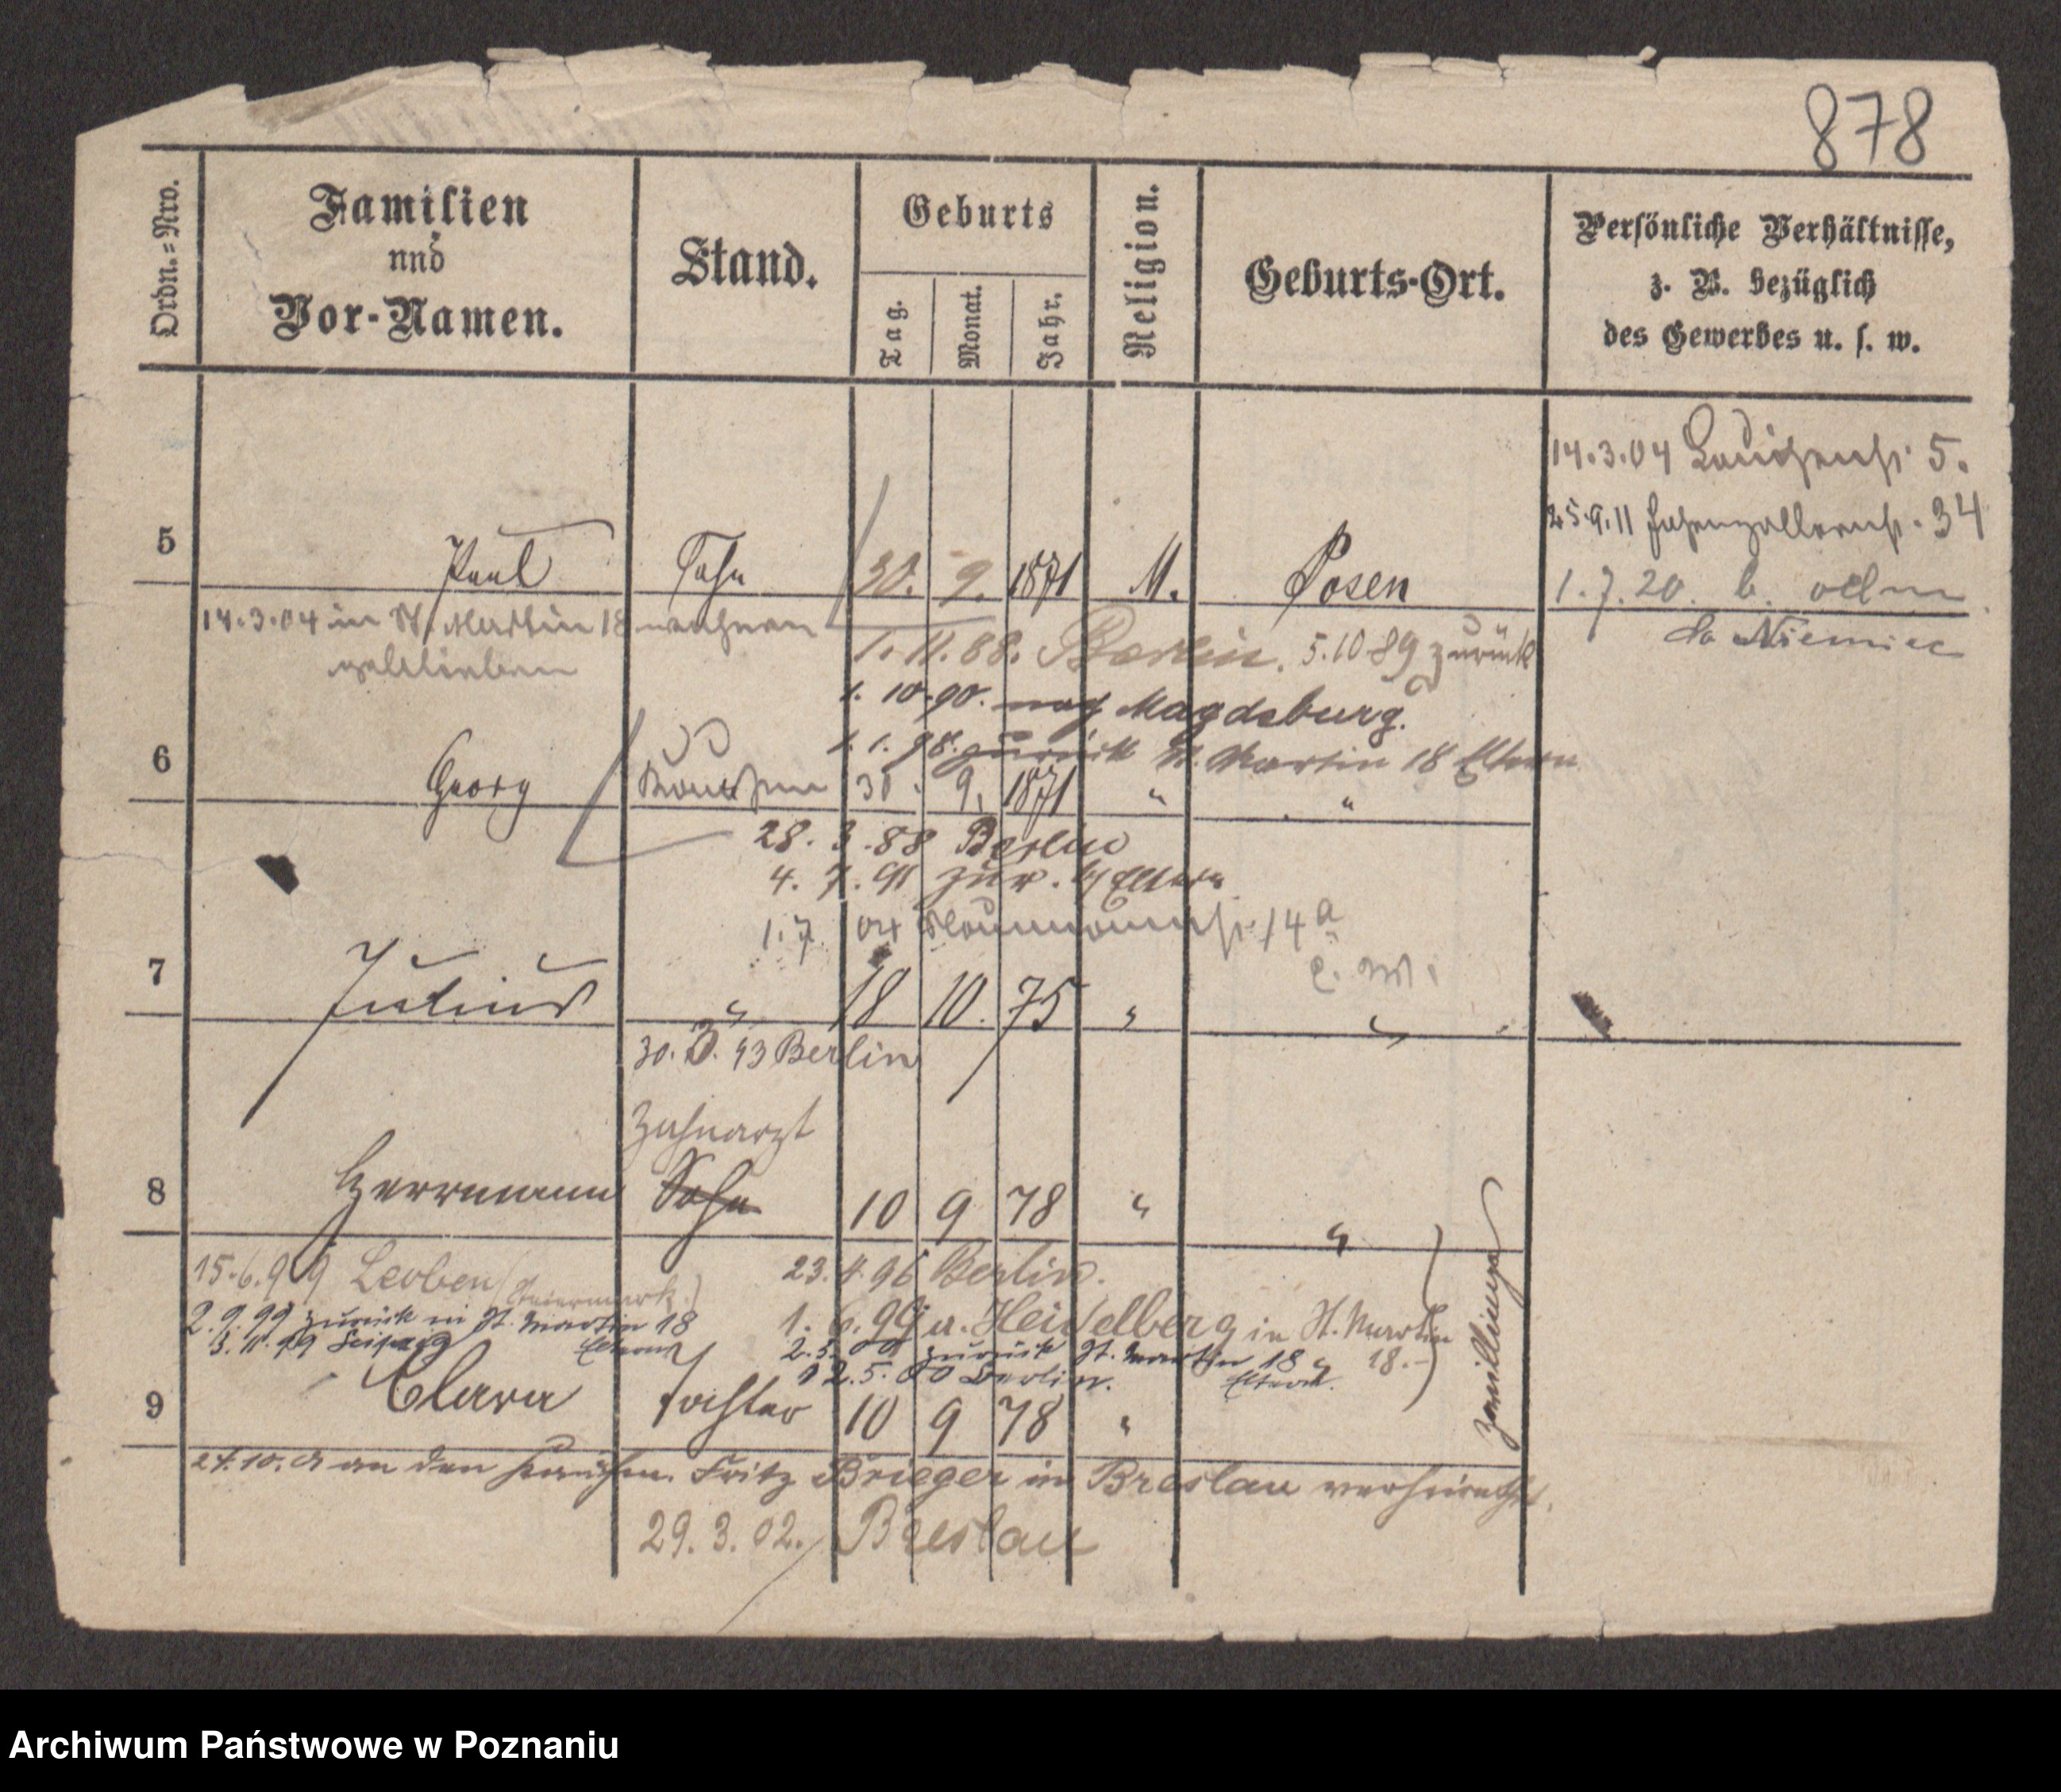 878
Ordn.=Nro.
Familien
und
Vor-Namen.
Stand.
Geburts
Tag.
Monat.
Jahr.
Religion.
Geburts-Ort.
Persönliche Verhältnisse,
z. B. bezüglich
des Gewerbes u. s. w.
14.3.04 Louisenstr. 5.
25.9.11 Hohenzollernstr. 34
5 Paul Sohn 30. 9. 1871 M. Posen
1.7.20. b. odm
do Niemiec
14.3.04 in St. Martin 18 wohnen
geblieben
1. 11. 88. Berlin. 5.10 89 zurück
1. 10. 90. nach Magdeburg.
1. 1. 98. zurück St. Martin 18 Eltern
6 Georg Kaufm 30. 9. 1871 " "
28. 3. 88 Berlin
4. 7. 91 zur. b/ Eltern
1. 7. 04 Naumannstr. 14a
7 Julius " 18 10. 75 " "
30. 3. 93 Berlin
Zahnarzt
8 Herrmann Sohn 10 9 78 " "
15.6.99 Leoben (Steiermark.)
23. 4. 96 Berlin.
2.9.99 zurück in St. Martin 18
Eltern
3. 11. 99 Leipzig
1. 6. 99 u. Heidelberg in St. Martin
18.-
2. 5. 00 zurück St. Martin 18
Eltern.
12. 5. 00 Berlin.
9 Clara Tochter 10 9 78 "
Zwillinge
27. 10. 01 an den Kaufm. Fritz Brieger in Breslau verheirathet.
29. 3. 02. Breslau
Archiwum Państwowe w Poznaniu